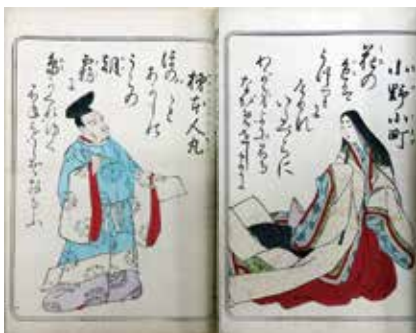 小野小町
花の
色は
うつりに
けりな
いたづらに
わが身よにふる
ながめせしまに
柿本人丸
ほの〴〵と
あかしの
うらの
朝
霧に
島がくれゆく
舟をしぞおもふ